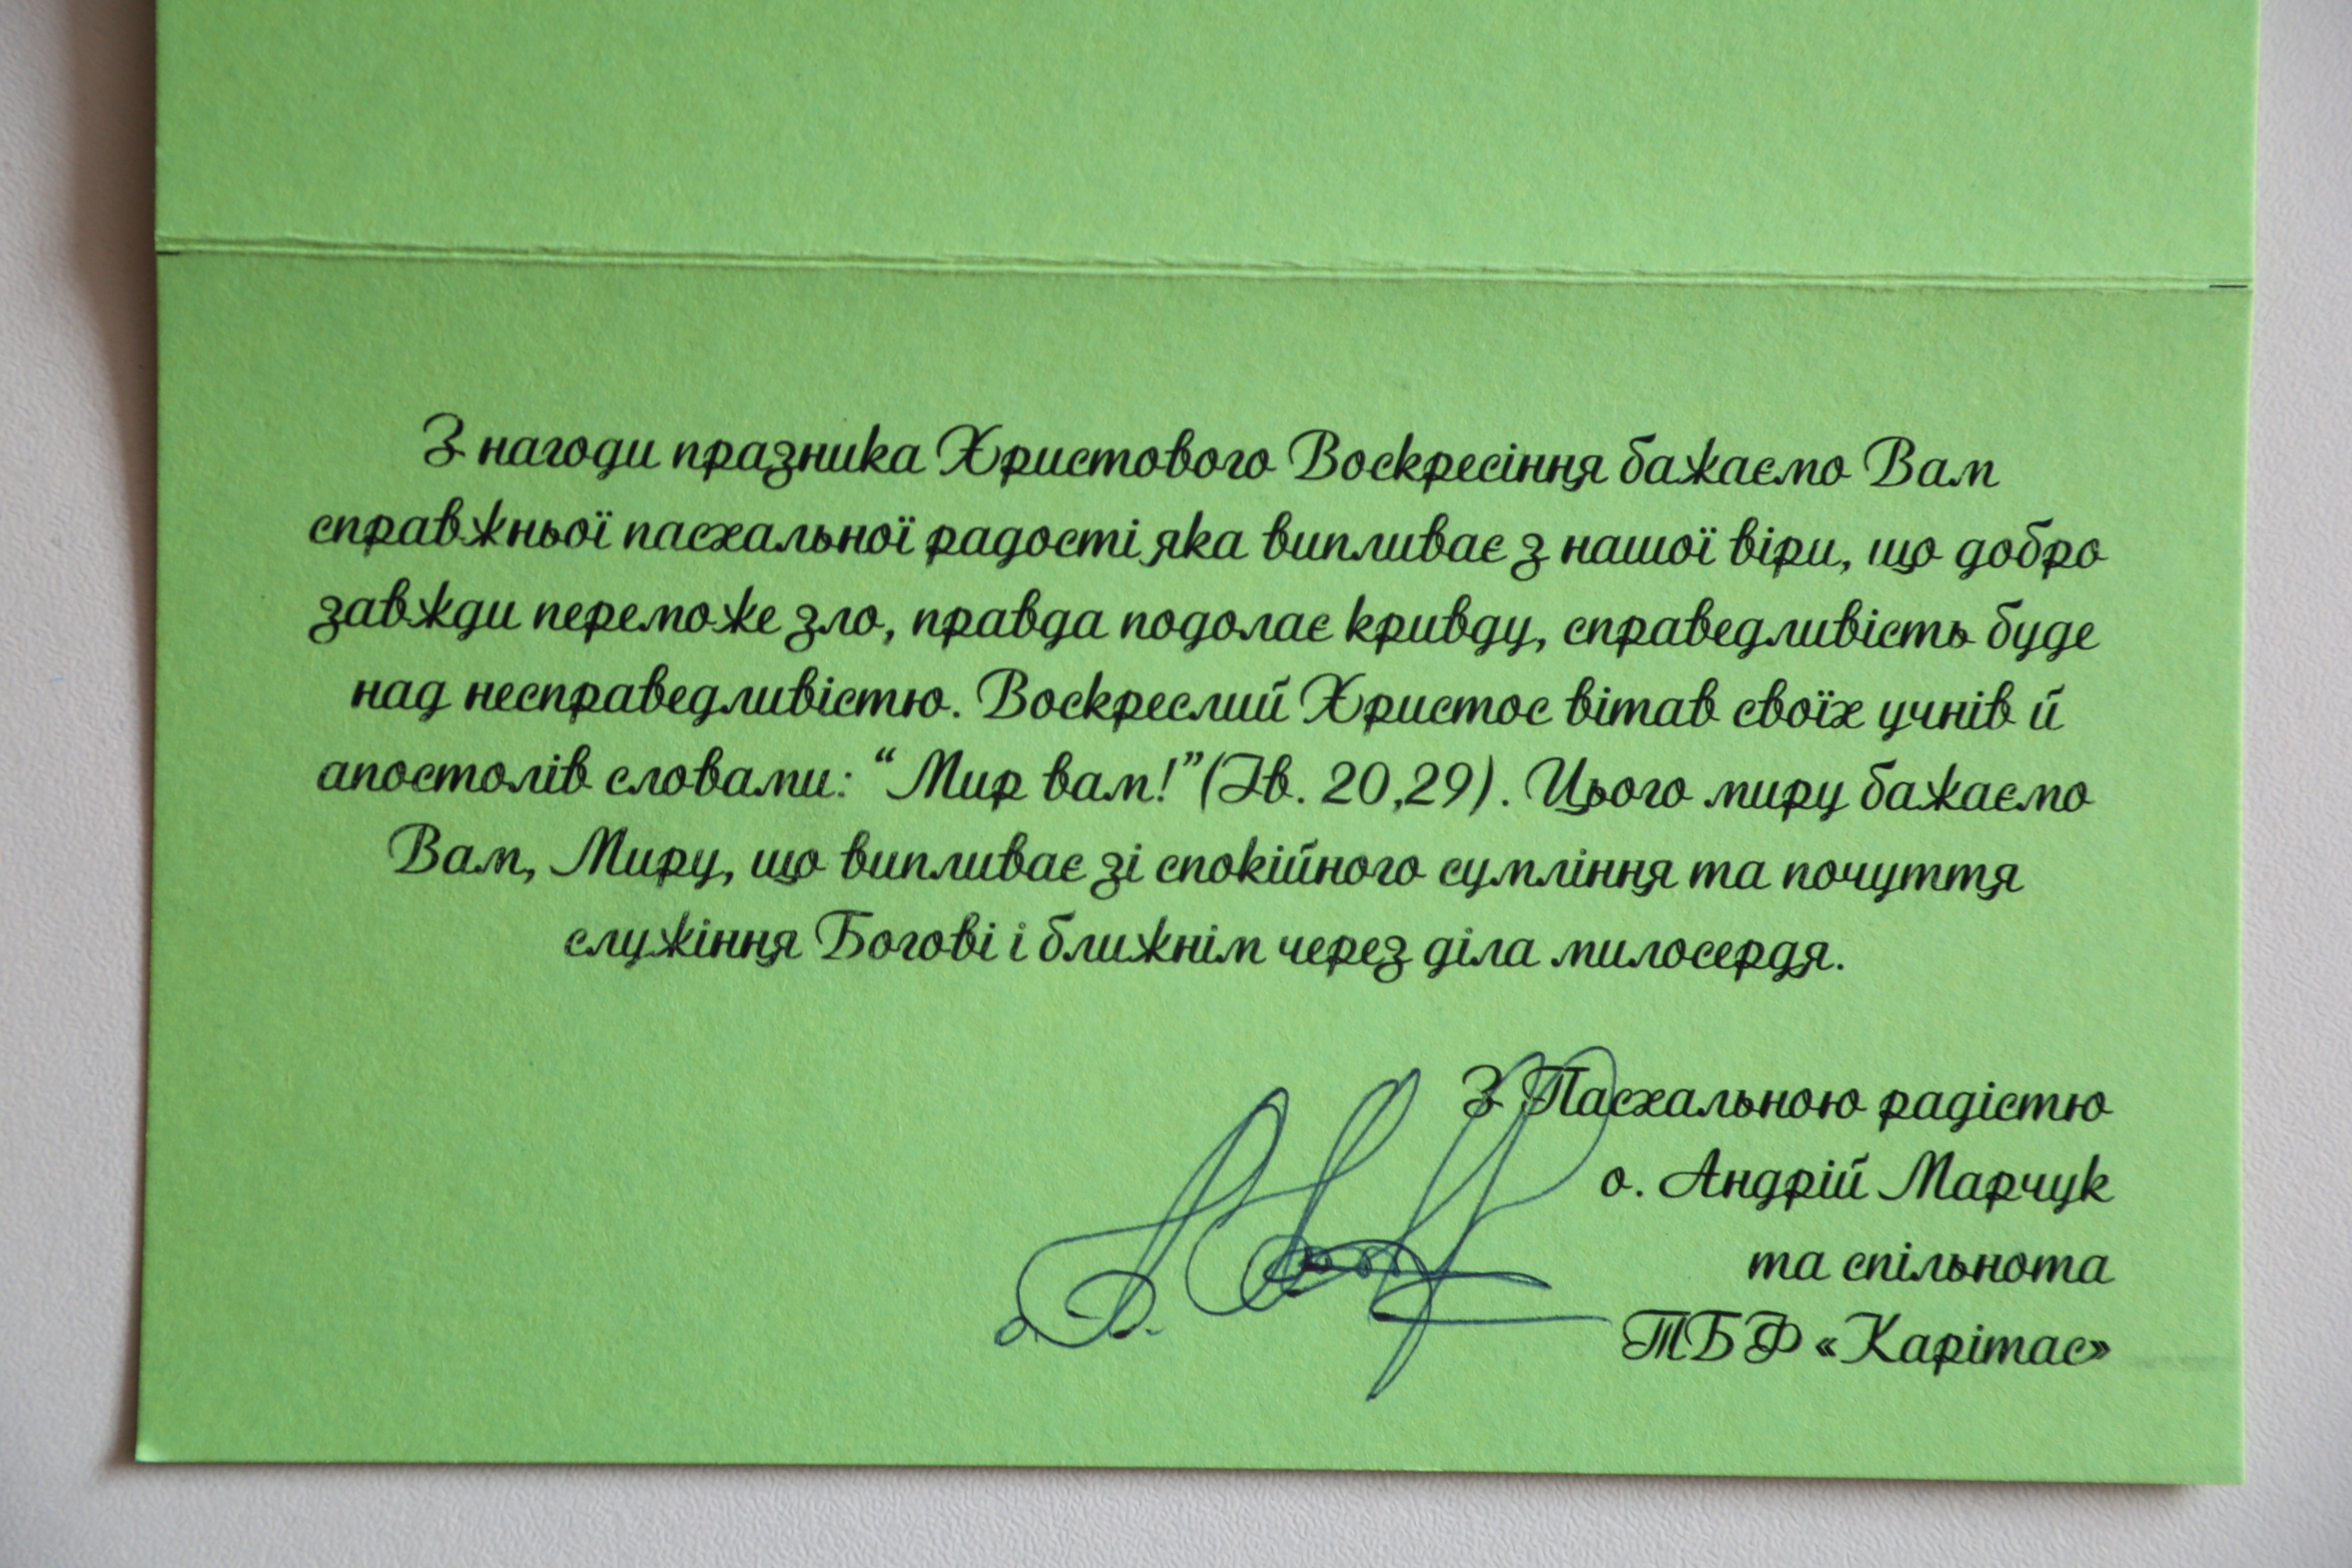 З нагоди празника Христового Воскресіння бажаємо Вам
справжньої пасхальної радості яка випливає з нашої віри, що добро
завжди переможе зло, правда подолає кривду, справедливість буде
над несправедливістю. Воскреслий Христос вітав своїх учнів й
апостолів словами: “Мир вам!”(Ів. 20,29). Цього миру бажаємо
Вам, Миру, що випливає зі спокійного сумління та почуття
служіння Богові і ближнім через діла милосердя.
З Пасхальною радістю
о. Андрій Марчук
та спільнота
ТБФ «Карітас»